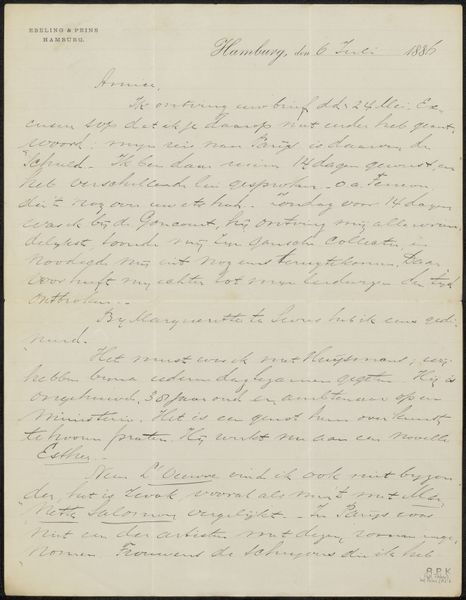 EBELING & PEINS
HAMBURG.
Hamburg, den 6 Juli 1886
Amice,
Ik ontving uw brief ddo 24 Mei. Ex-
dat ik je daarop niet eerder heb geant-
woord; mijn reis naar Parijs is daarvan de
schuld. Ik ben daar ruim 14 dagen geweest, en
heb verschillende gesproken. o.a.
die nog over uw ets had. Zondag voor 14 dagen
was ik bij de Goncourt, hij ontving mij
toonde mij zijn gansche collectie, en
noodigde mij uit nog eens terug te komen. Daar-
voor heeft mij echter tot mijn de tijd
ontbroken.
By Marguerittte te Sèvres heb ik eens gedi-
neerd.
Het meest was ik met Huysmans, wij
hebben bijna iederen dag te zamen gegeten. Hij is
ongehuwd, 38 jaar oud en ambtenaar op een
Ministerie. Het is een genot hem over kunst
te hooren praten. Hij werkt nu aan een novelle
Esther.
Neen L'Oeuvre vind ik ook niet byzon-
der, het is zwak vooral als men 't met
Salomon vergelijkt. In Parijs was
niet een der artisten met dezen roman inge-
nomen. Trouwens de schrijvers die ik heb